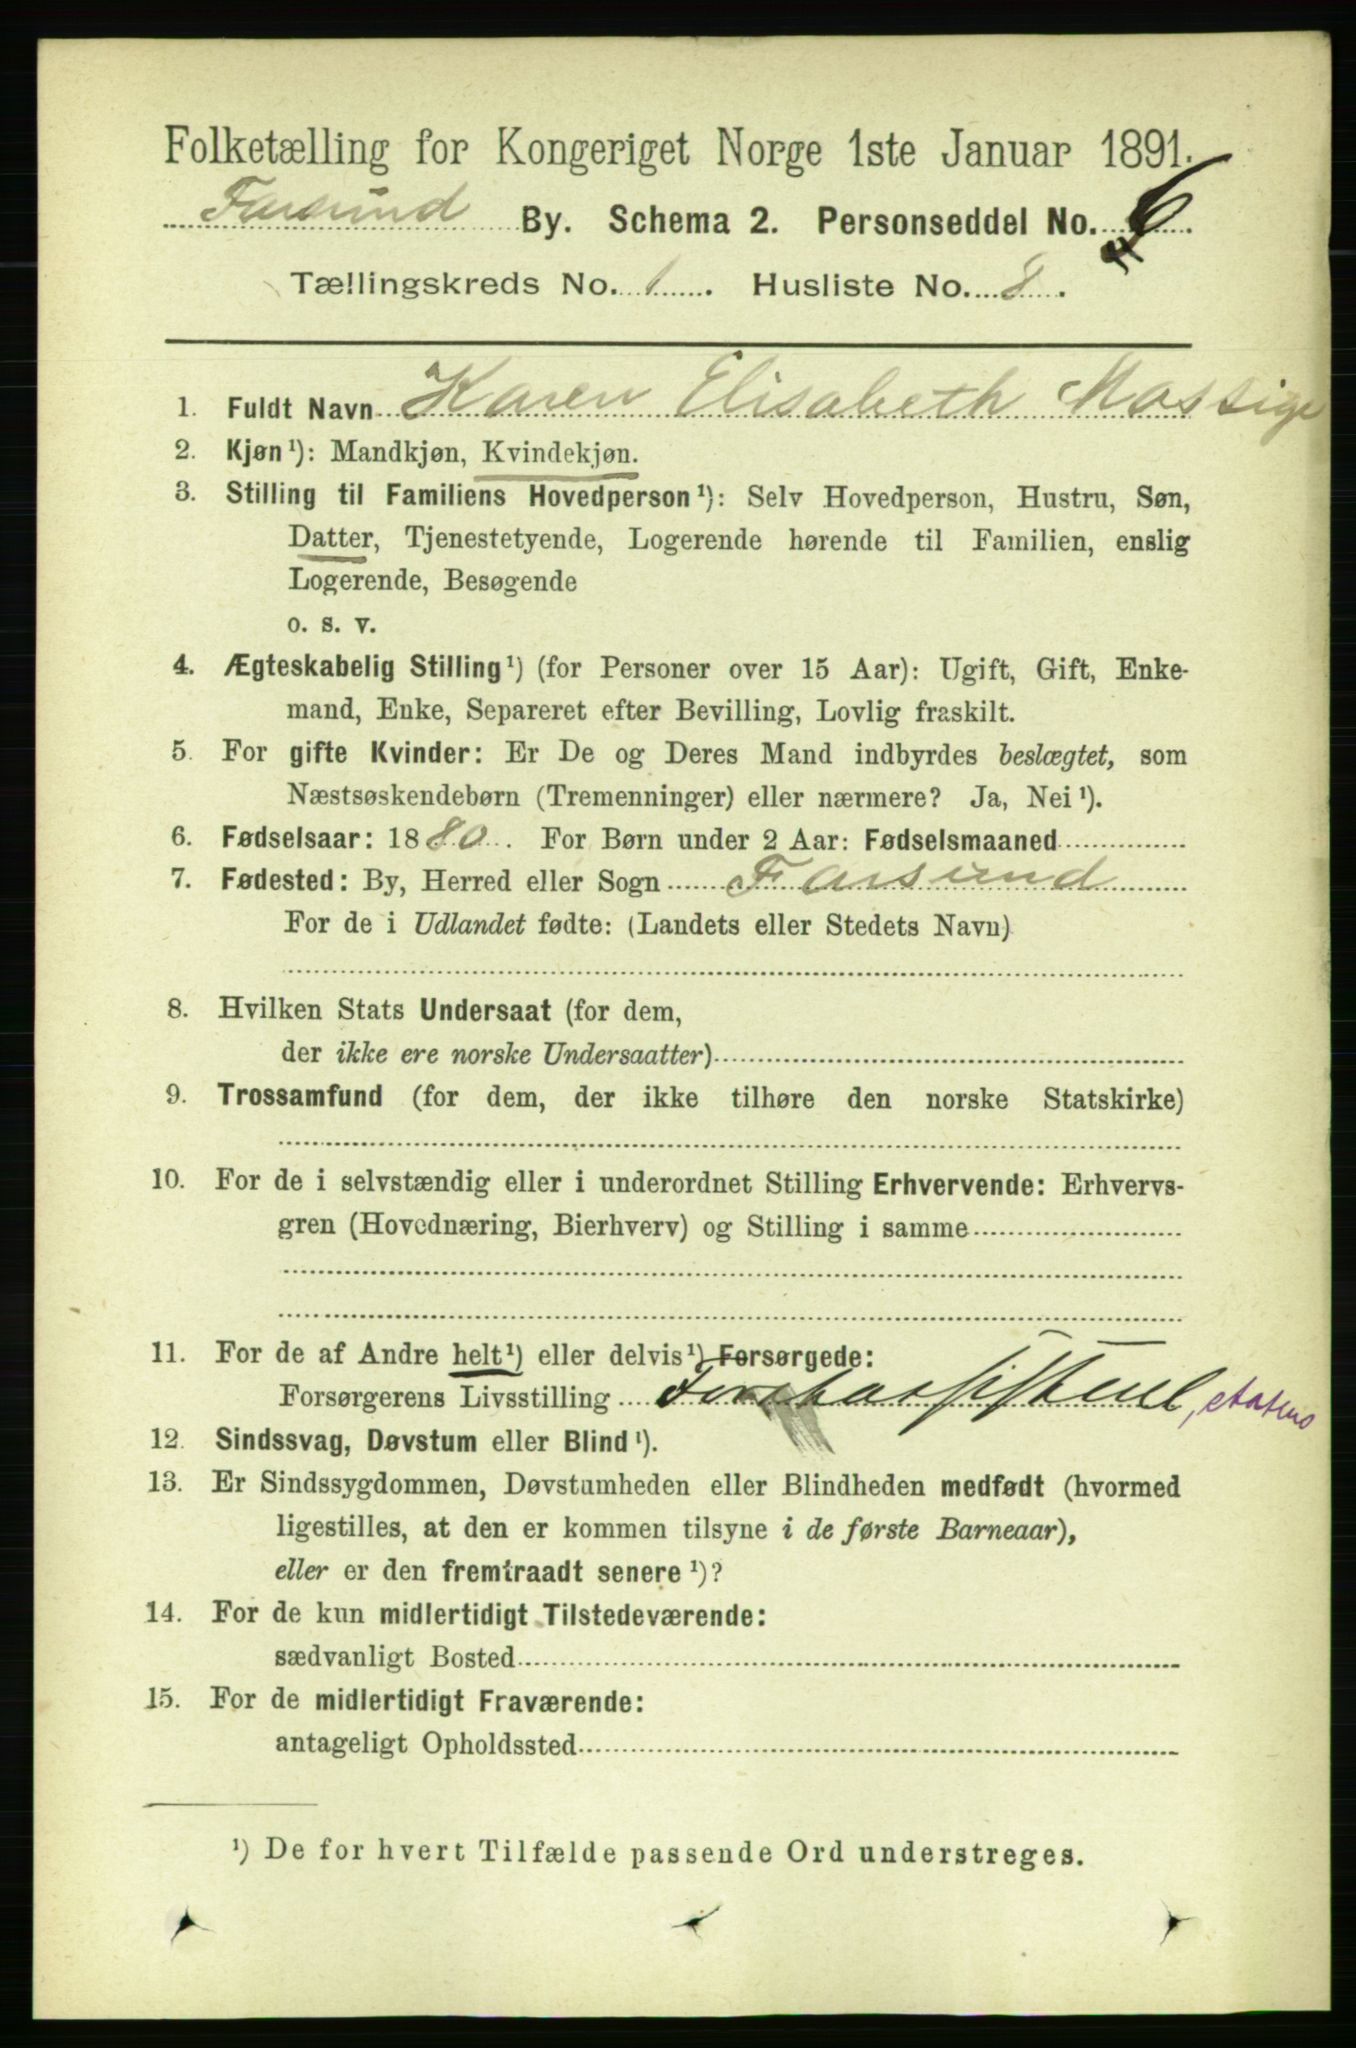 Folketælling for Kongeriget Norge 1ste Januar 1891.
Farsund By. Schema 2. Personseddel No. 6.
Tællingskreds No. 1. Husliste No. 8.
1. Fuldt Navn Karen Elisabeth Massige
2. Kjøn ¹): Mandkjøn, Kvindekjøn.
3. Stilling til Familiens Hovedperson ¹): Selv Hovedperson, Hustru, Søn,
Datter, Tjenestetyende, Logerende hørende til Familien, enslig
Logerende, Besøgende
o. s. v.
4. Ægteskabelig Stilling ¹) (for Personer over 15 Aar): Ugift, Gift, Enke-
mand, Enke, Separeret efter Bevilling, Lovlig fraskilt.
5. For gifte Kvinder: Er De og Deres Mand indbyrdes beslægtet, som
Næstsøskendebørn (Tremenninger) eller nærmere? Ja, Nei ¹).
6. Fødselsaar: 1880. For Børn under 2 Aar: Fødselsmaaned
7. Fødested: By, Herred eller Sogn Farsund
For de i Udlandet fødte: (Landets eller Stedets Navn)
8. Hvilken Stats Undersaat (for dem,
der ikke ere norske Undersaatter)
9. Trossamfund (for dem, der ikke tilhøre den norske Statskirke)
10. For de i selvstændig eller i underordnet Stilling Erhvervende: Erhvervs-
gren (Hovednæring, Bierhverv) og Stilling i samme
11. For de af Andre helt ¹) eller delvis ¹) Forsørgede:
Forsørgerens Livsstilling
12. Sindssvag, Døvstum eller Blind ¹).
13. Er Sindssygdommen, Døvstumheden eller Blindheden medfødt (hvormed
ligestilles, at den er kommen tilsyne i de første Barneaar),
eller er den fremtraadt senere ¹)?
14. For de kun midlertidigt Tilstedeværende:
sædvanligt Bosted
15. For de midlertidigt Fraværende:
antageligt Opholdssted
¹) De for hvert Tilfælde passende Ord understreges.